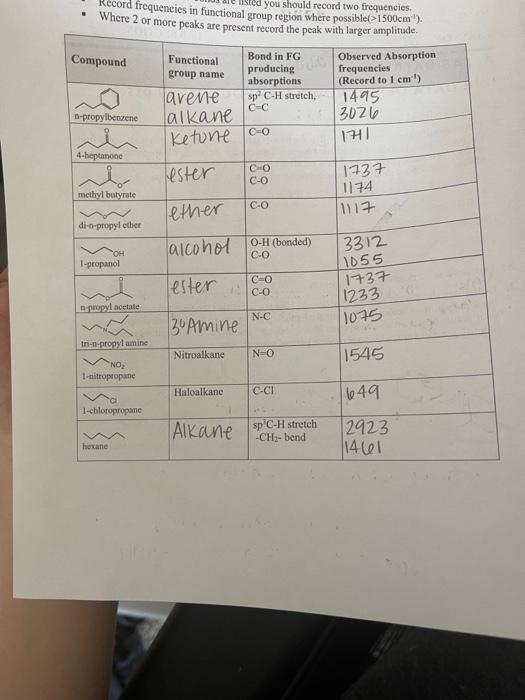 Record frequencies in functional group region where possible(>1500cm⁻¹).
Where 2 or more peaks are present record the peak with larger amplitude.
Compound
Functional group name
Bond in FG producing absorptions
Observed Absorption frequencies (Record to 1 cm⁻¹)
n-propylbenzene
arene
alkane
sp² C-H stretch,
C=C
1495
3026
4-heptanone
Ketone
C=O
1711
methyl butyrate
ester
C=O
C-O
1737
1174
di-n-propyl ether
ether
C-O
1117
OH
1-propanol
alcohol
O-H (bonded)
C-O
3312
1055
n-propyl acetate
ester
C=O
C-O
1737
1233
tri-n-propyl amine
3° Amine
N-C
1075
NO₂
1-nitropropane
Nitroalkane
N=O
1545
Cl
1-chloropropane
Haloalkane
C-Cl
649
hexane
Alkane
sp³C-H stretch
-CH₂- bend
2923
1461